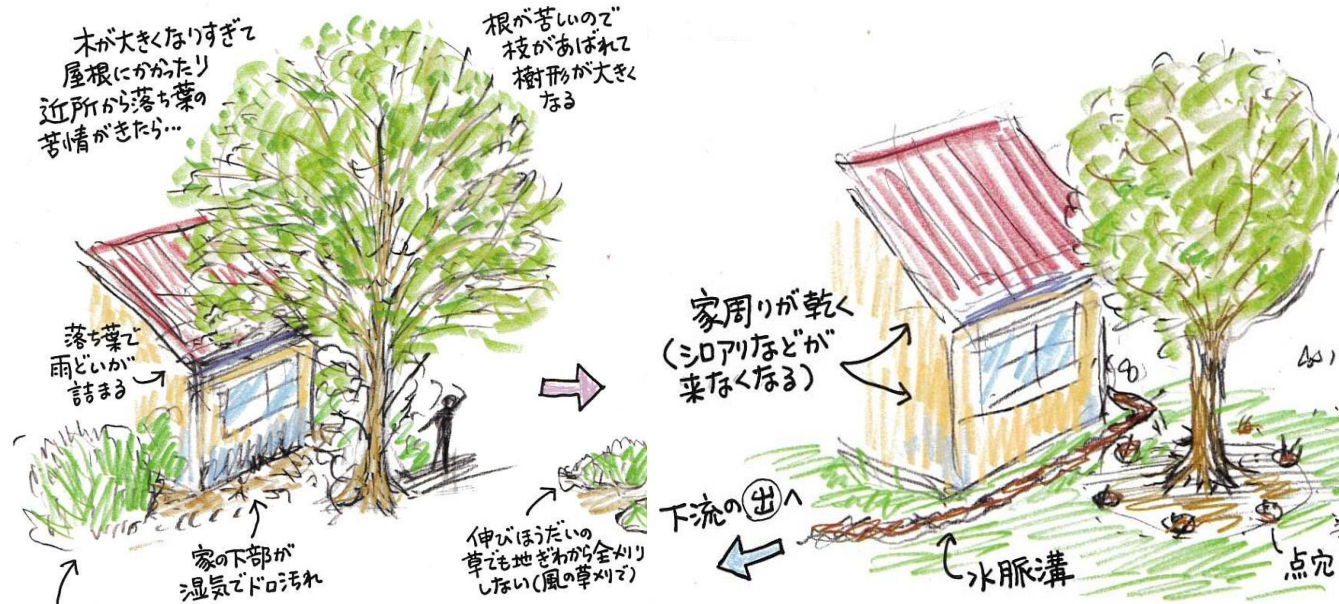 木が大きくなりすぎて
屋根にかかったり
近所から落ち葉の
苦情がきたら…
根が苦しいので
枝があばれて
樹形が大きく
なる
落ち葉で
雨どいが
詰まる
家の下部が
湿気でドロ汚れ
伸びほうだいの
草でも地ぎわから全メリ
しない(風の草メリで)
家周りが乾く
(シロアリなどが
来なくなる)
下流の出へ
水脈溝
点穴